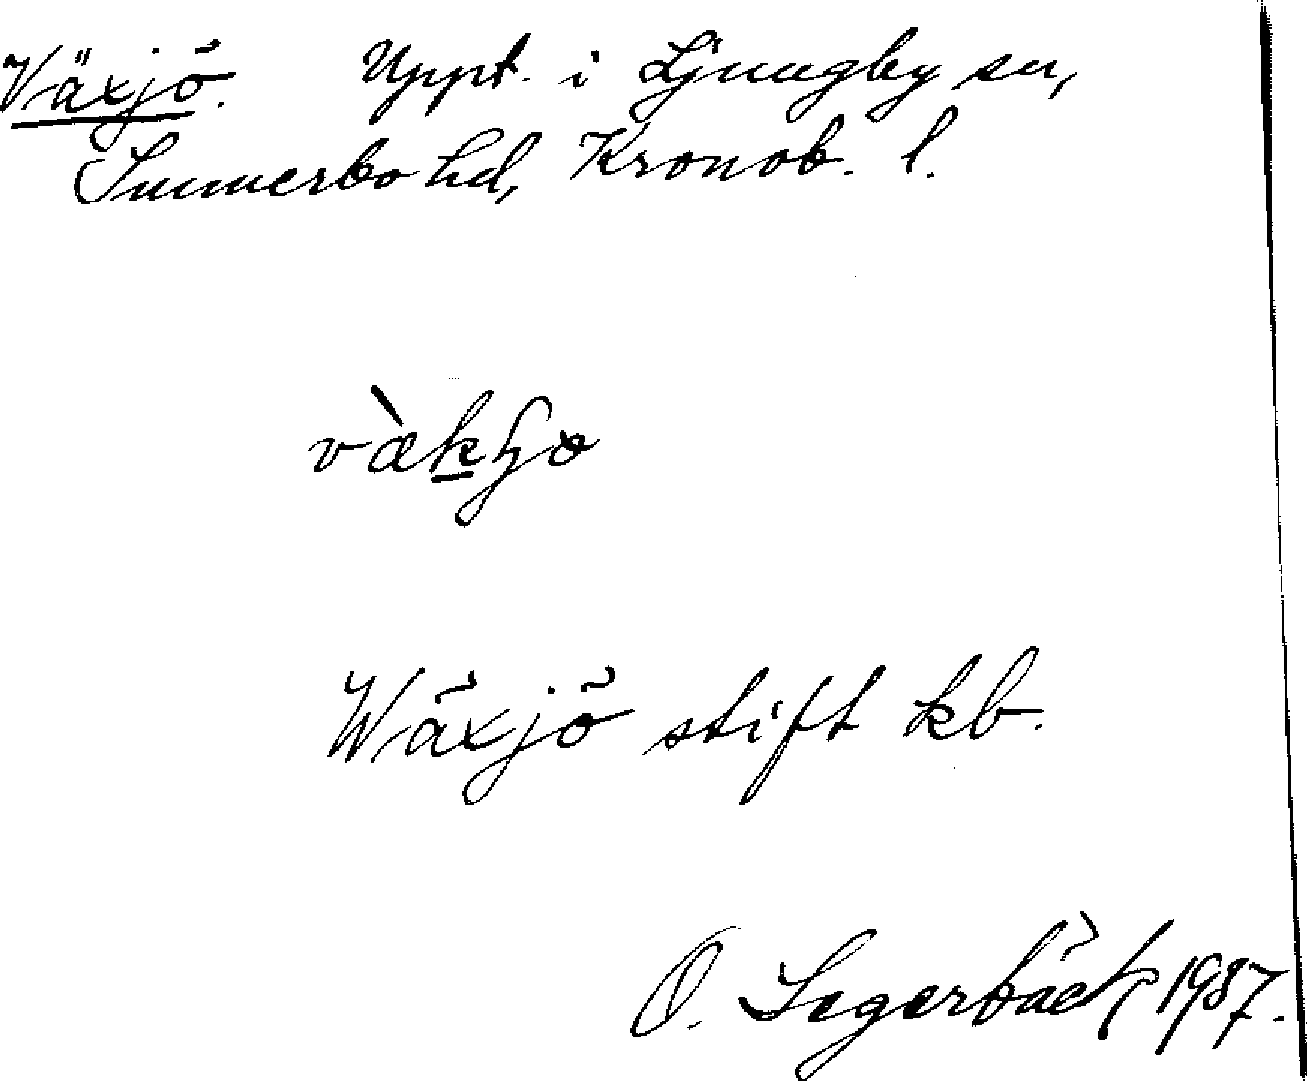 Växjö. Uppt. i Ljungby sn,
Sunnerbo hd, Kronob. l.
Wäxjö stift kb.
O. Segerbäck 1937.